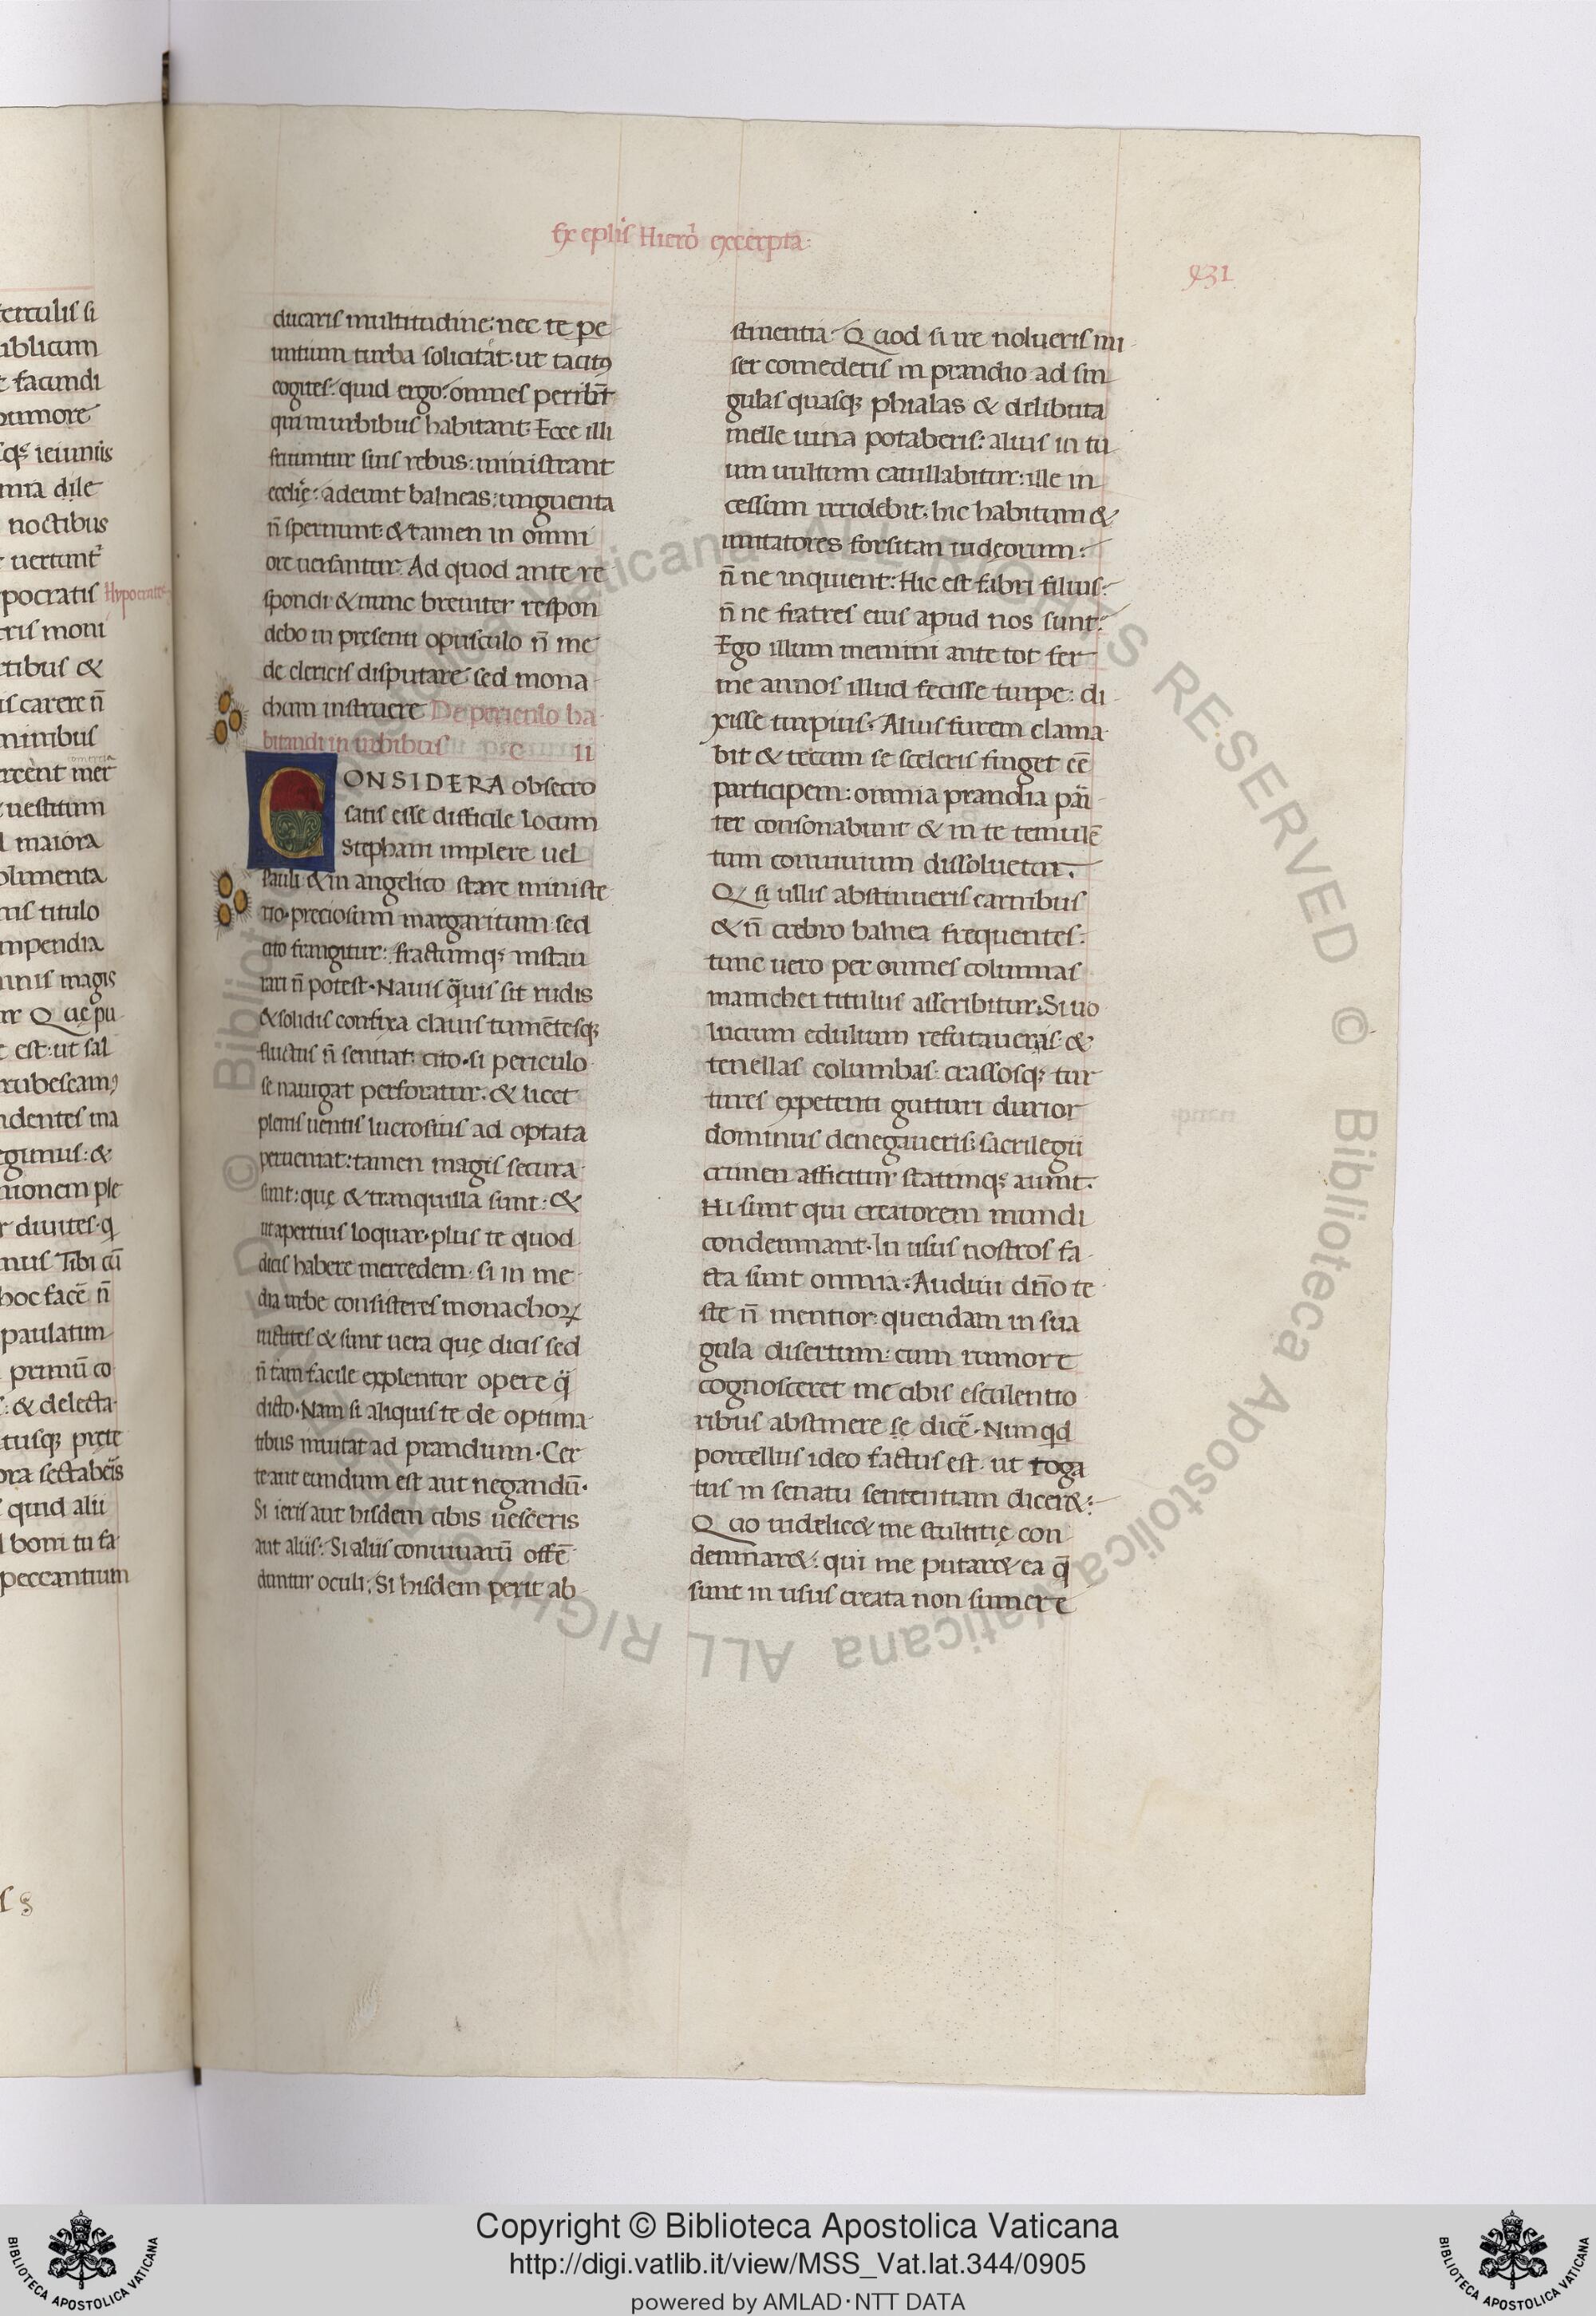 Ex eplis Hiero excerpta:
431
terculis si
iblicum
facundi
rumore
sq; ieiuniis
mia dile
noctibus
uertunt
pocratis Hypocrates
eris moni
rtibus &
is carere n̄
minibus
ercent mer
uestitum
maiora
olimenta
nis titulo
mpendia
nnis magis
Quę pu
est: ut sal
rubescam9
identes ma
egimus: &
nionem ple
diuites q
mus Tibi cū
hoc facē n̄
paulatim
primū co
: & delecta
tusq; prete
ora sectabeis
quid alii
boni tu fa
peccantium
ducaris multitudine: nec te pe
untium turba solicitat. ut tacit9
cogites: quid ergo: omnes peribūt
qui in urbibus habitant. Ecce illi
fruuntur suis rebus: ministrant
ecclię: adeunt balneas: unguenta
n̄ spernunt & tamen in omni
ore uersantur. Ad quod ante re
spondi & nunc breuiter respon
debo in presenti opusculo n̄ me
de clericis disputare sed mona
chum instruere De periculo ha
bitandi in urbibus c II
CONSIDERA obsecro
satis esse difficile locum
Stephani implere uel
Pauli & in angelico stare ministe
rio. preciosum margaritum sed
cito frangitur: fractumq; instau
rari n̄ potest. Nauis q̄uis sit rudis
& solidis confixa clauis tumētesq;
fluctus n̄ sentiat: cito. si periculo
se nauigat perforatur. & licet
plenis uentis lucrosius ad optata
perueniat: tamen magis secura
sunt: quę & tranquilla sunt: &
ut apertius loquar. plus te quod
dicis habere mercedem. si in me
dia urbe consisteres monachoꝝ
iustites & sunt uera quę dicis sed
n̄ tam facile explentur opere q̄
dicto. Nam si aliquis te de optima
tibus inuitat ad prandium. Cer
te aut eundum est aut negandū.
Si ieris aut hisdem cibis uesceris
aut aliis: Si aliis conuiuarū offē
duntur oculi; Si hisdem perit ab
stinentia. Quod si ire nolueris mi
ser comederis in prandio ad sin
gulas quasq; phialas & delibuta
melle uina potaberis: alius in tu
um uultum catullabitur: ille in
cessum irridebit. hic habitum &
imitatores forsitan iudęorum:
n̄ ne inquient: Hic est fabri filius:
n̄ ne fratres eius apud nos sunt:
Ego illum memini ante tot fer
me annos illud fecisse turpe: di
xisse turpius. Alius furem clama
bit & tecum se sceleris finget eē
participem: omnia prandia pari
ter consonabunt & in te temulē
tum conuiuium dissoluetur.
Q si ullis abstinueris carnibus
& n̄ crebro balnea frequentes:
tunc uero per omnes columnas
manichei titulus asscribitur. Si uo
lucrum edulium refutaueris: &
tenellas columbas: crassosq; tur
tures expetenti gutturi durior
dominus denegaueris; sacrilegii
crimen afficitur statimq; aiunt.
Hi sunt qui creatorem mundi
condemnant. In usus nostros fa
cta sunt omnia: Audiui dn̄o te
ste n̄ mentior: quendam in sua
gula disertum: cum rumore
cognosceret me cibis esculentio
ribus abstinere sę dicē. Nunqd
porcellus ideo factus est. ut toga
tus in senatu sententiam dicer&:
Quo uidelic& me stultitię con
demnar&: qui me putar& ea q̄
sunt in usus creata non sumere
Copyright © Biblioteca Apostolica Vaticana
http://digi.vatlib.it/view/MSS_Vat.lat.344/0905
powered by AMLAD·NTT DATA
© Biblioteca Apostolica Vaticana ALL RIGHTS RESERVED
© Biblioteca Apostolica Vaticana ALL RIGHTS RESERVED
BIBLIOTECA APOSTOLICA VATICANA
BIBLIOTECA APOSTOLICA VATICANA